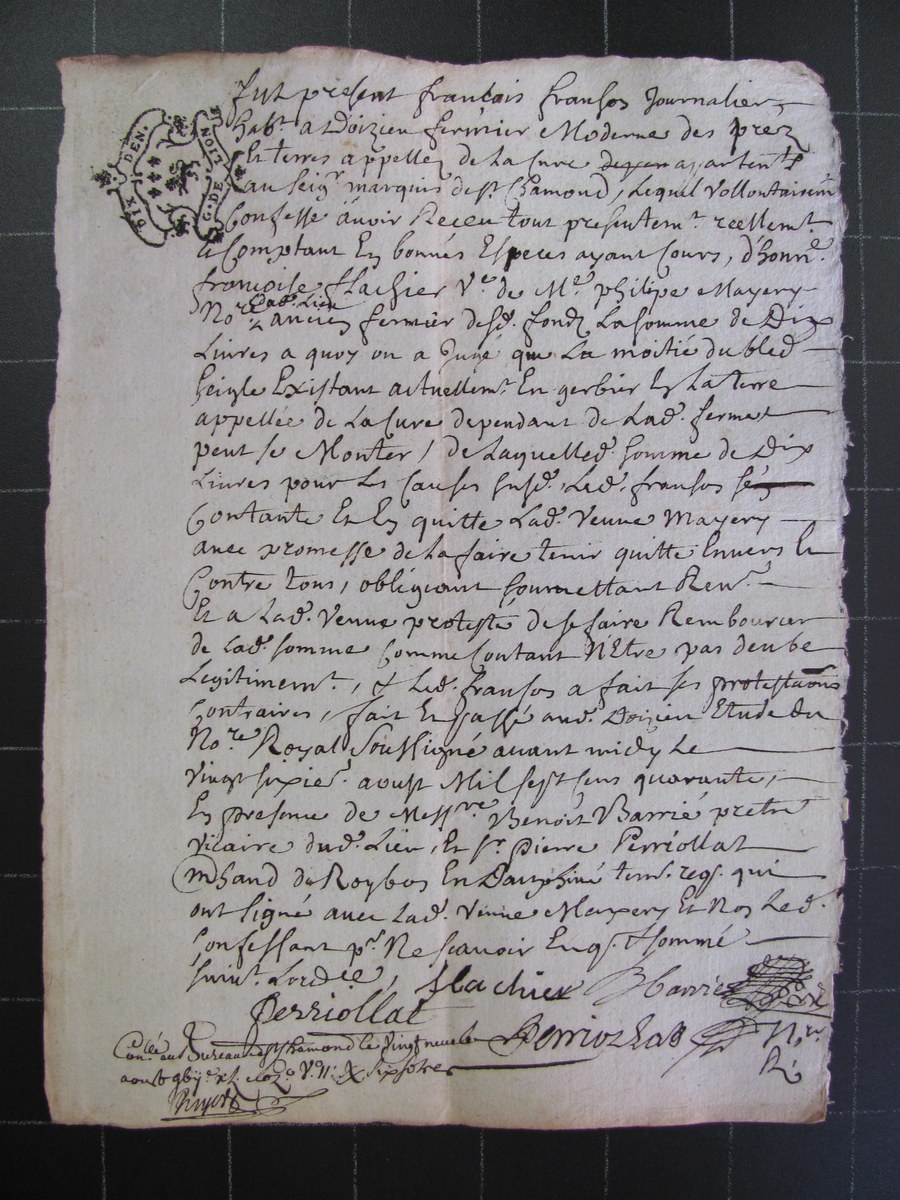 SIX DEN.
G. DE LION
Fut present francois fransos Journalier
habt a Doizieu fermier Moderne des prez
Et terres appellez de La Cure appartents
au seigr marquis de st Chamond, Lequel vollontairemt
Confesse avoir Receu tout presentemt reellemt
Et Comptant En bonnes Especes ayant Cours, d'honne
francoise flachier Ve de Me philipe Mayery
Nore dud. Lieu ancien fermier desd. fondz La somme de Dix
Livres a quoy on a Jugé que La moitié du bled
seigle Existant actuellemt En gerbier En La terre
appellée de La Cure dependant de Lad. ferme
peut se Monter, de Laquelled. somme de Dix
Livres pour Les Causes susd. Led. fransos se
Contante Et En quitte Lad. Veuve Mayery
avec promesse de La faire tenir quitte Envers Et
Contre tous, obligeant soumettant Rent
Et a Lad. Veuve protesté de se faire Rembourcer
de Lad. somme Comme Contant N'Etre pas deube
Legitimemt, & Led. fransos a fait ses protestaons
Contraires, fait Et passé aud. Doizieu Etude du
Nore Royal Soussigné avant midy Le
vingt sixie aoust Mil sept cens quarante,
En presence de Messre Benoit Barrié pretre
vicaire dud. Lieu, Et sr. pierre Perriollat
mchand de Roybos En Dauphiné tem. reqs. qui
ont signé avec Lad. Veuve Mayery Et Non Led.
Confessant pr. Ne scavoir Enqs. & sommé
suivt. Lordce,
flachier Barrié
Perriollat
Perriollat Nre
R.
Conllé au Bureau de st Chamond le vingt neuf
aoust